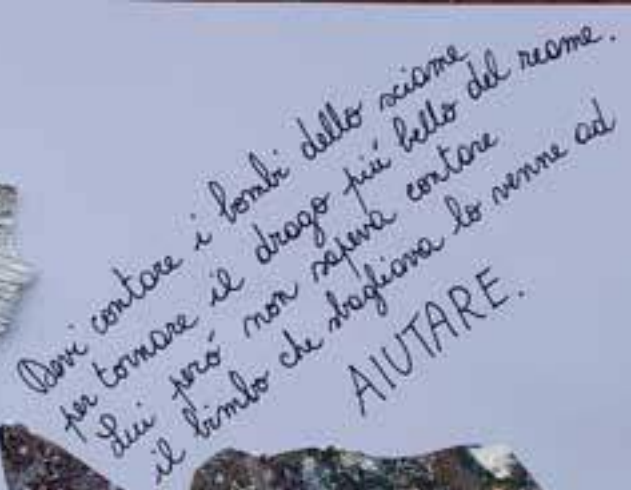 Devi contare i bombi dello sciame
per tornare il drago più bello del reame.
Lui però non sapeva contare
il bimbo che sbagliava lo venne ad
AIUTARE.